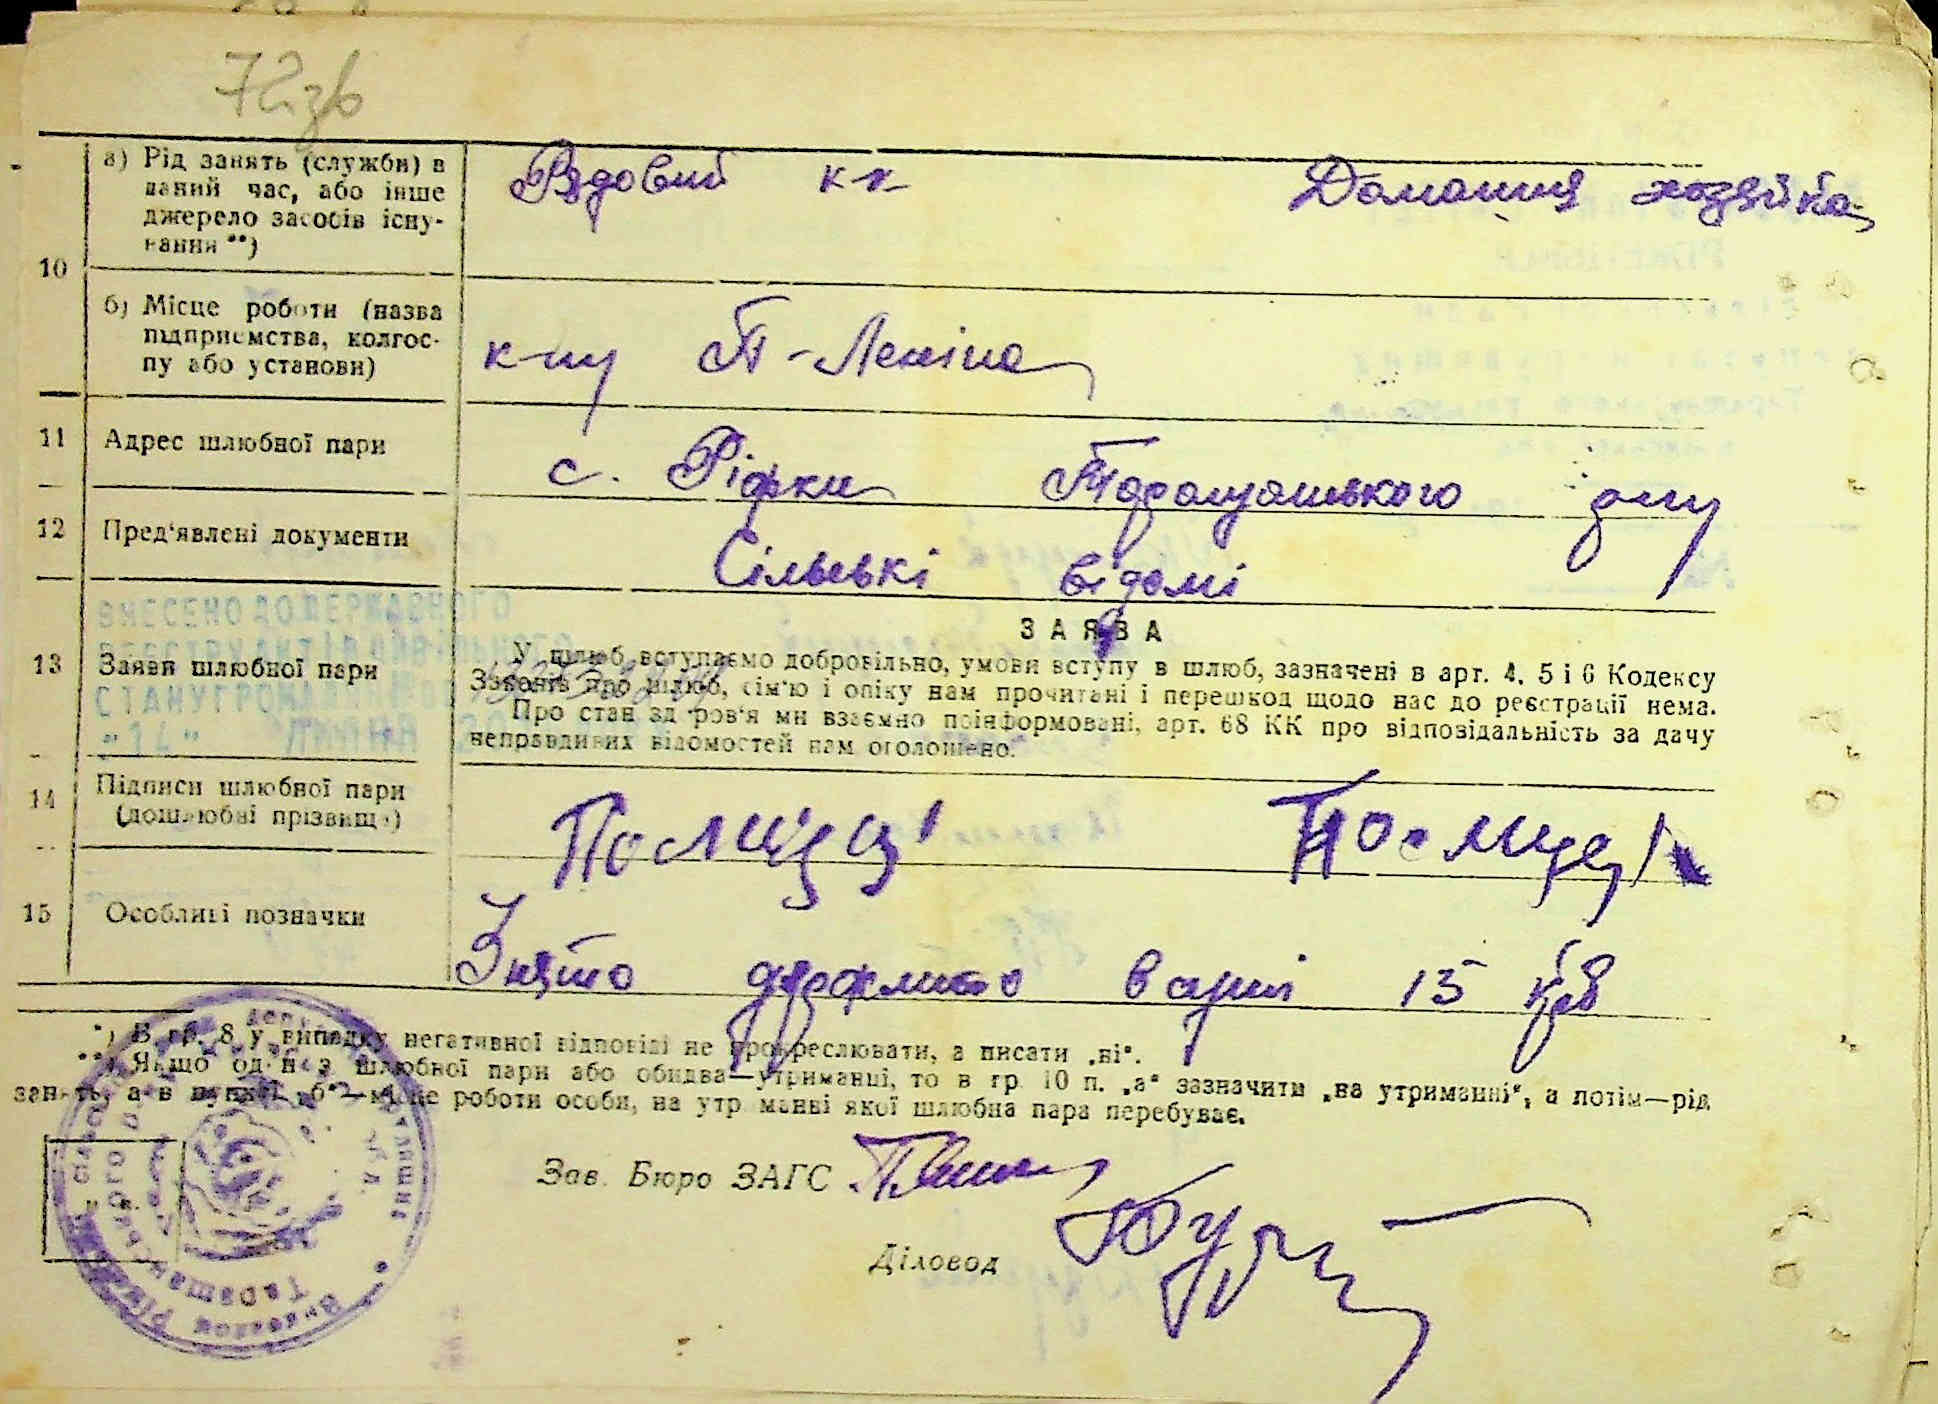 72зв
10
а) Рід занять (служби) в
даний час, або інше
джерело засобів існу-
вання **)
Рядовий к-к
Домашня хозяйка
б) Місце роботи (назва
підприємства, колгос-
пу або установи)
к-пу Леніна
11
Адрес шлюбної пари
с. Ріжки Таращанського
12
Пред'явлені документи
Сільські відомі
ВНЕСЕНО ДО ДЕРЖАВНОГО
РЕЄСТРУ АКТІВ ЦИВІЛЬНОГО
"14" ЛИПНЯ
13
Заяви шлюбної пари
ЗАЯВА
У шлюб вступаємо добровільно, умови вступу в шлюб, зазначені в арт. 4, 5 і 6 Кодексу
Законів про шлюб, сім'ю і опіку нам прочитані і перешкод щодо нас до реєстрації нема.
Про стан здоров'я ми взаємно поінформовані, арт. 68 КК про відповідальність за дачу
неправдивих відомостей нам оголошено.
14
Підписи шлюбної пари
(дошлюбні прізвища)
15
Особливі позначки
Знято 15
*) В гр. 8 у випадку негативної відповіді не прокреслювати, а писати „ні“.
**) Якщо один з шлюбної пари або обидва—утриманці, то в гр. 10 п. „а“ зазначити „на утриманні“, а потім—рід
занять, а в пункті „б“—місце роботи особи, на утриманні якої шлюбна пара перебуває.
Зав. Бюро ЗАГС
Діловод